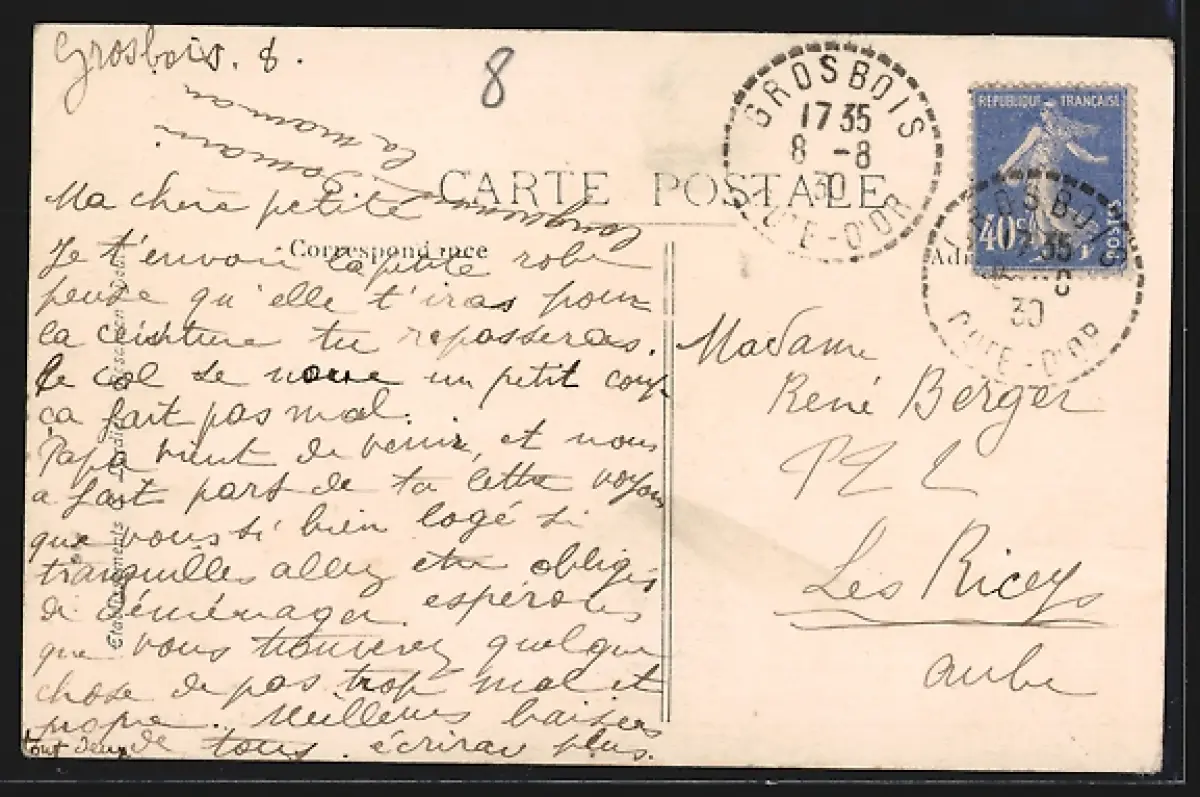 Grosbois. 8.
8
la maman
CARTE POSTALE
Correspondance
Ma chère petite
Je t'envoie ta petite robe
pense qu'elle t'iras pour
la ceinture tu repasseras.
le col se noue un petit coup
ça fait pas mal.
Papa vient de venir, et nous
a fait part de ta lettre voyons
que vous si bien logé si
tranquilles allez etre obligés
de déménager. espérons
que vous trouverez quelque
chose de pas trop mal et
propre. Meilleurs baisers
tout deux de tous. écrirai plus.
GROSBOIS
17 35
8 -8
30
COTE-D'OR
REPUBLIQUE FRANÇAISE
40c
POSTES
GROSBOIS
17 35
8
30
COTE-D'OR
Madame
René Berger
PLL
Les Riceys
aube